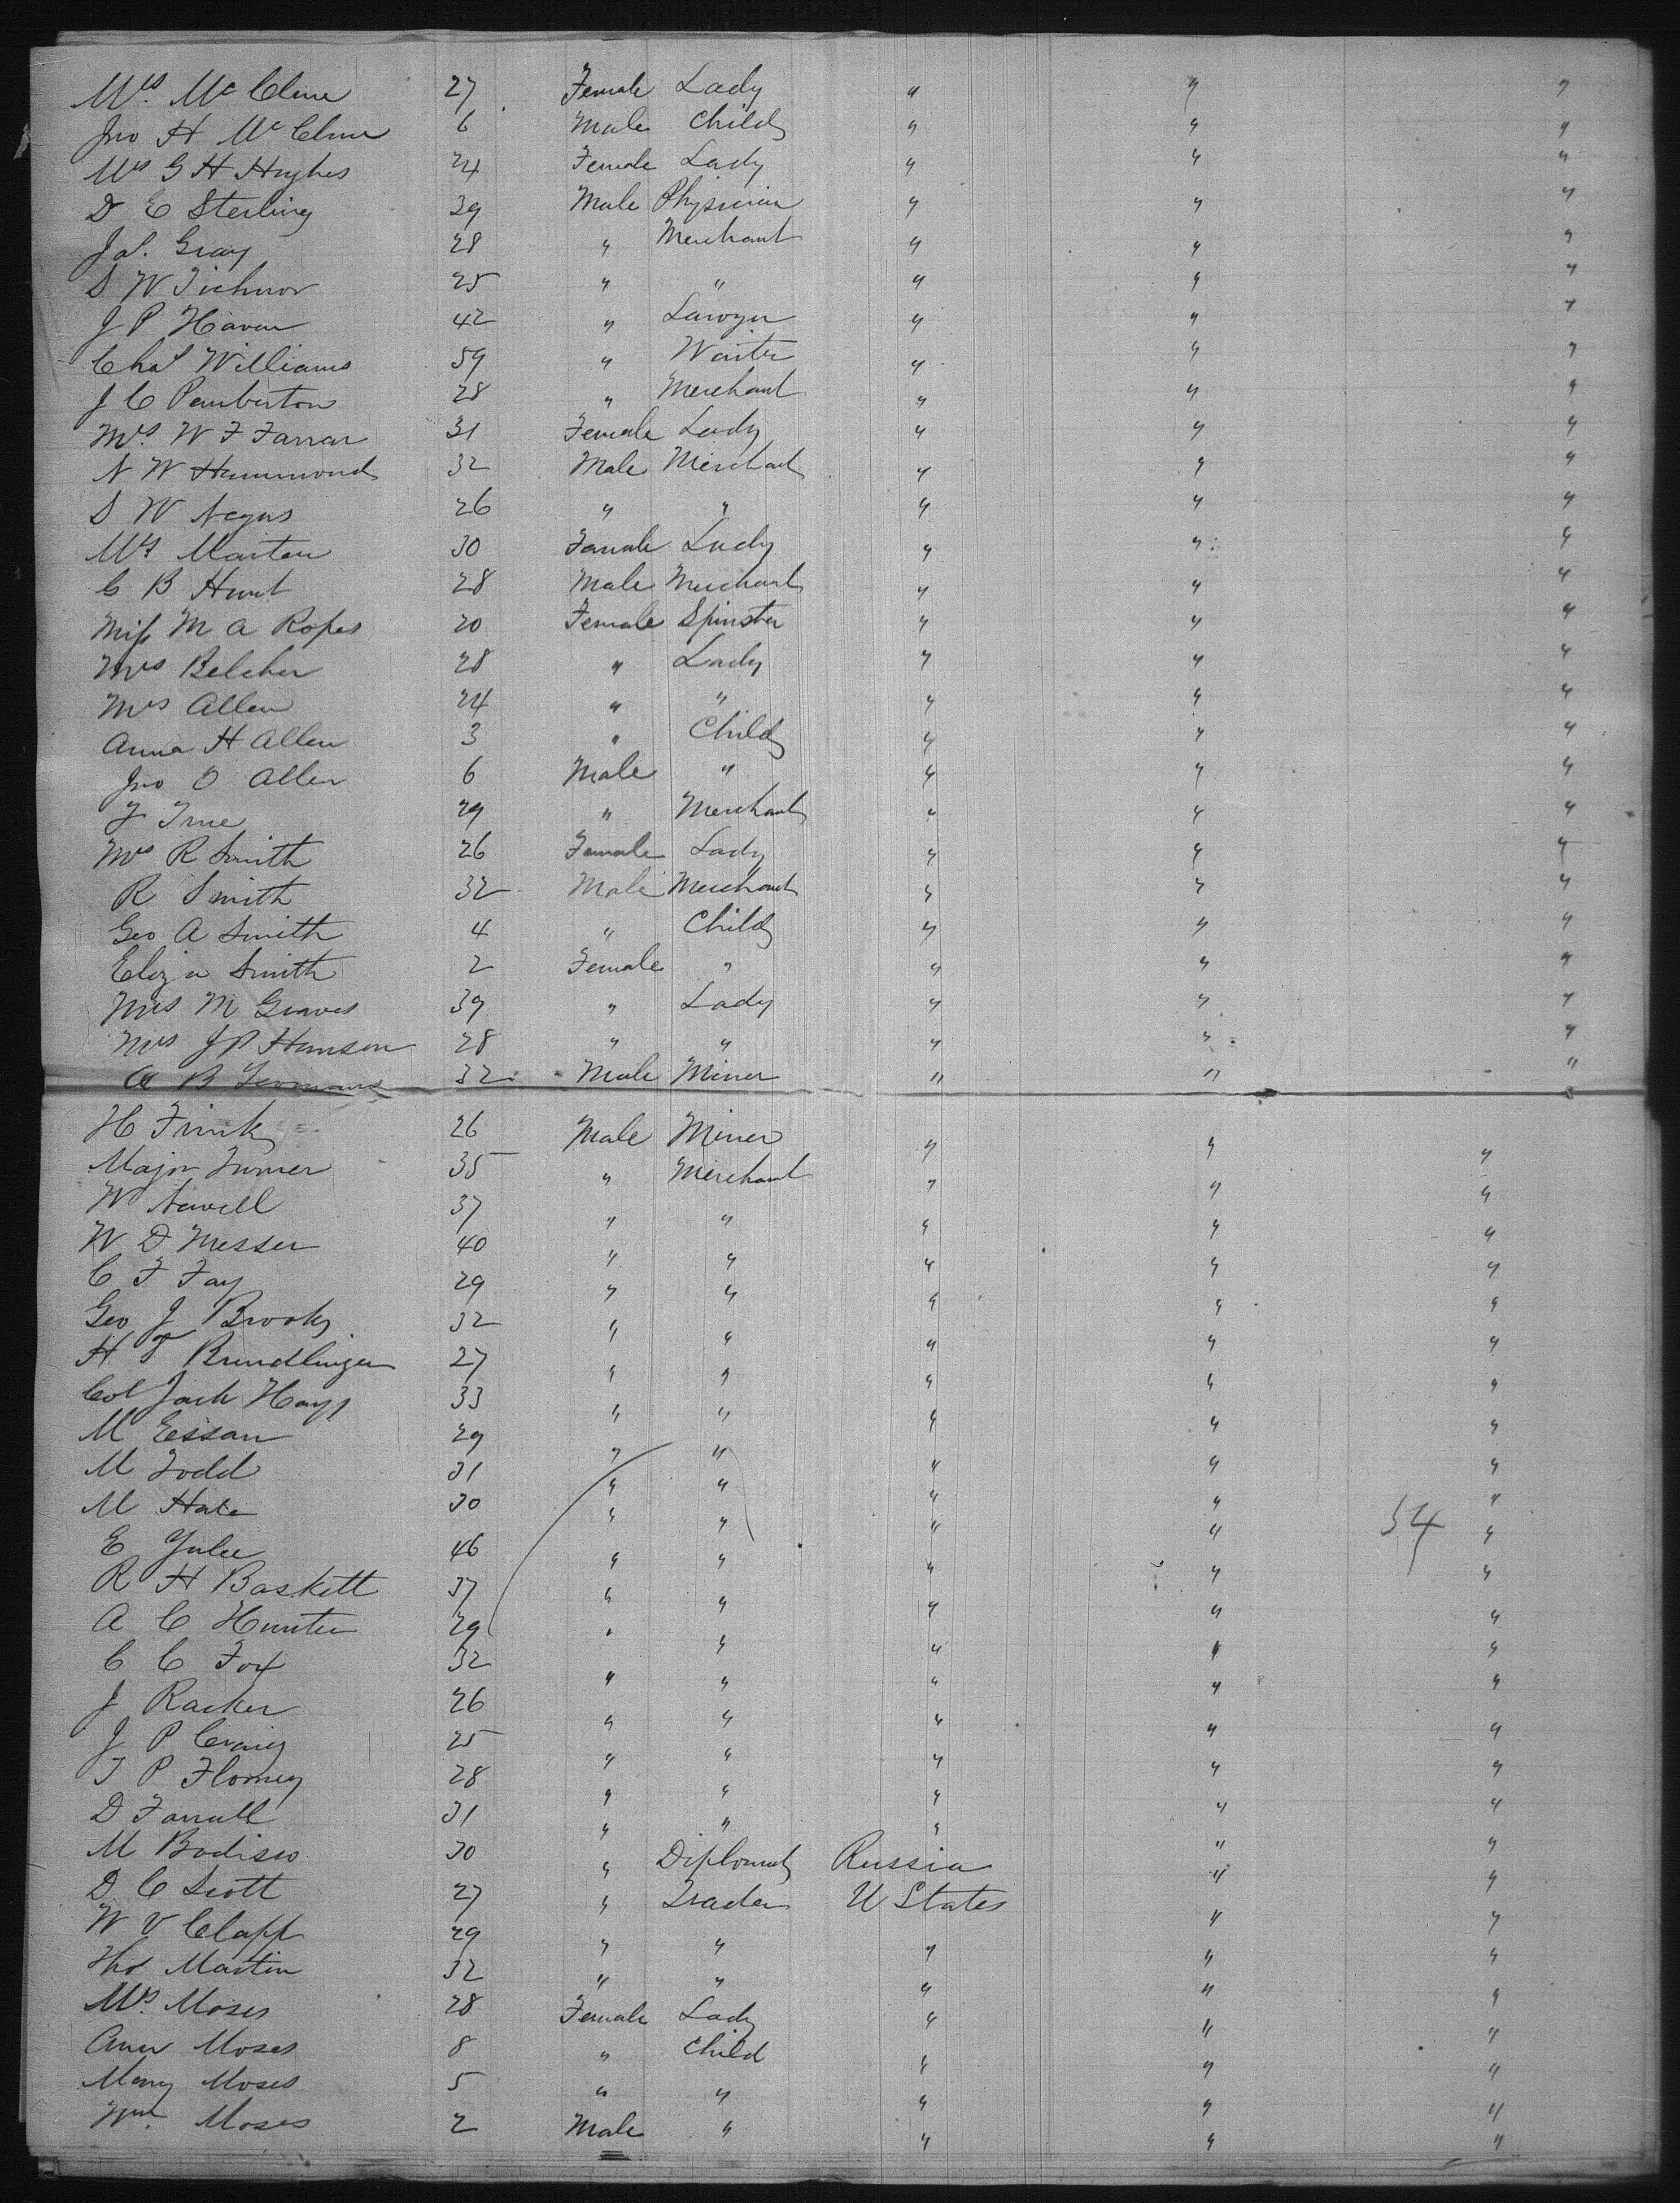 Mrs. McClure 27 Female Lady " " "
Jno H McClure 6 Male Child " " "
Mrs G H Hughes 24 Female Lady " " "
D E Sterling 39 Male Physician " " "
Jas. Gray 28 " Merchant " " "
S W Tichnor 25 " " " " "
J P Haven 42 " Lawyer " " "
Chas Williams 59 " Waiter " " "
J C Pemberton 28 " Merchant " " "
Mrs. W F Farrar 31 Female Lady " " "
N W Hammond 32 Male Merchant " " "
S W Negus 26 " " " " "
Mrs Marten 30 Female Lady " " "
C B Hunt 28 Male Merchant " " "
Miss M A Ropes 20 Female Spinster " " "
Mrs Belcher 28 " Lady " " "
Mrs Allen 24 " " " " "
Anna H Allen 3 " Child " " "
Jno O Allen 6 Male " " " "
J True 29 " Merchant " " "
Mrs R Smith 26 Female Lady " " "
R Smith 32 Male Merchant " " "
Geo A Smith 4 " Child " " "
Eliza Smith 2 Female " " " "
Mrs M Graves 39 " Lady " " "
Mrs J P Hanson 28 " " " " "
A B 32 Male Miner " " "
H Frink 26 Male Miner " " "
Major Turner 35 " Merchant " " "
W Newell 37 " " " " "
W D Messer 40 " " " " "
C F Fay 29 " " " " "
Geo J Brooks 32 " " " " "
H T 27 " " " " "
Col Jack Hays 33 " " " " "
M Essan 29 " " " " "
M Todd 31 " " " " "
M Hale 30 " " " " "
54
E Yulee 46 " " " " "
R H Baskett 37 " " " " "
A C Hunter 29 " " " " "
C C Fox 32 " " " " "
J Racker 26 " " " " "
J P Craig 25 " " " " "
T P Flomey 28 " " " " "
D Farrall 31 " " " " "
M Bodisco 30 " Diplomat Russia " "
D C Scott 27 " Trader U States " "
W V Clapp 29 " " " " "
Thos Martin 32 " " " " "
Mrs. Moses 28 Female Lady " " "
Ann Moses 8 " Child " " "
Mary Moses 5 " " " " "
Wm. Moses 2 Male " " " "